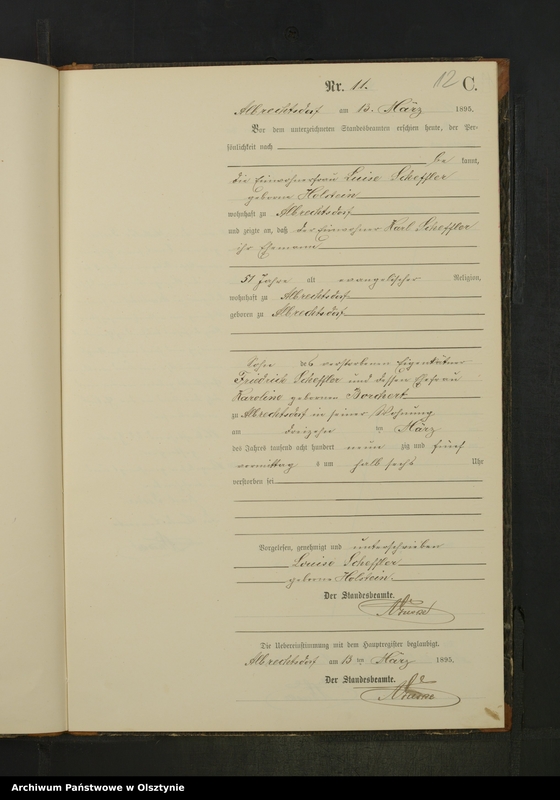 Nr. 11. 12 C.
Albrechtsdorf am 13. März 1895.
Vor dem unterzeichneten Standesbeamten erschien heute, der Per-
sönlichkeit nach
be kannt,
die Einwohnerfrau Luise Scheffler
geborne Holstein
wohnhaft zu Albrechtsdorf
und zeigte an, daß der Einwohner Karl Scheffler
ihr Ehemann
51 Jahre alt evangelischer Religion,
wohnhaft zu Albrechtsdorf
geboren zu Albrechtsdorf
Sohn des verstorbenen Eigenkätner
Friedrich Scheffler und dessen Ehefrau
Karoline gebornen Borchert
zu Albrechtsdorf in seiner Wohnung
am dreizehn ten März
des Jahres tausend acht hundert neun zig und fünf
vormittag s um halb sechs Uhr
verstorben sei
Vorgelesen, genehmigt und unterschrieben
Louise Scheffler
geborne Holstein.
Der Standesbeamte.
Die Uebereinstimmung mit dem Hauptregister beglaubigt.
Albrechtsdorf am 13 ten März 1895.
Der Standesbeamte.
Archiwum Państwowe w Olsztynie